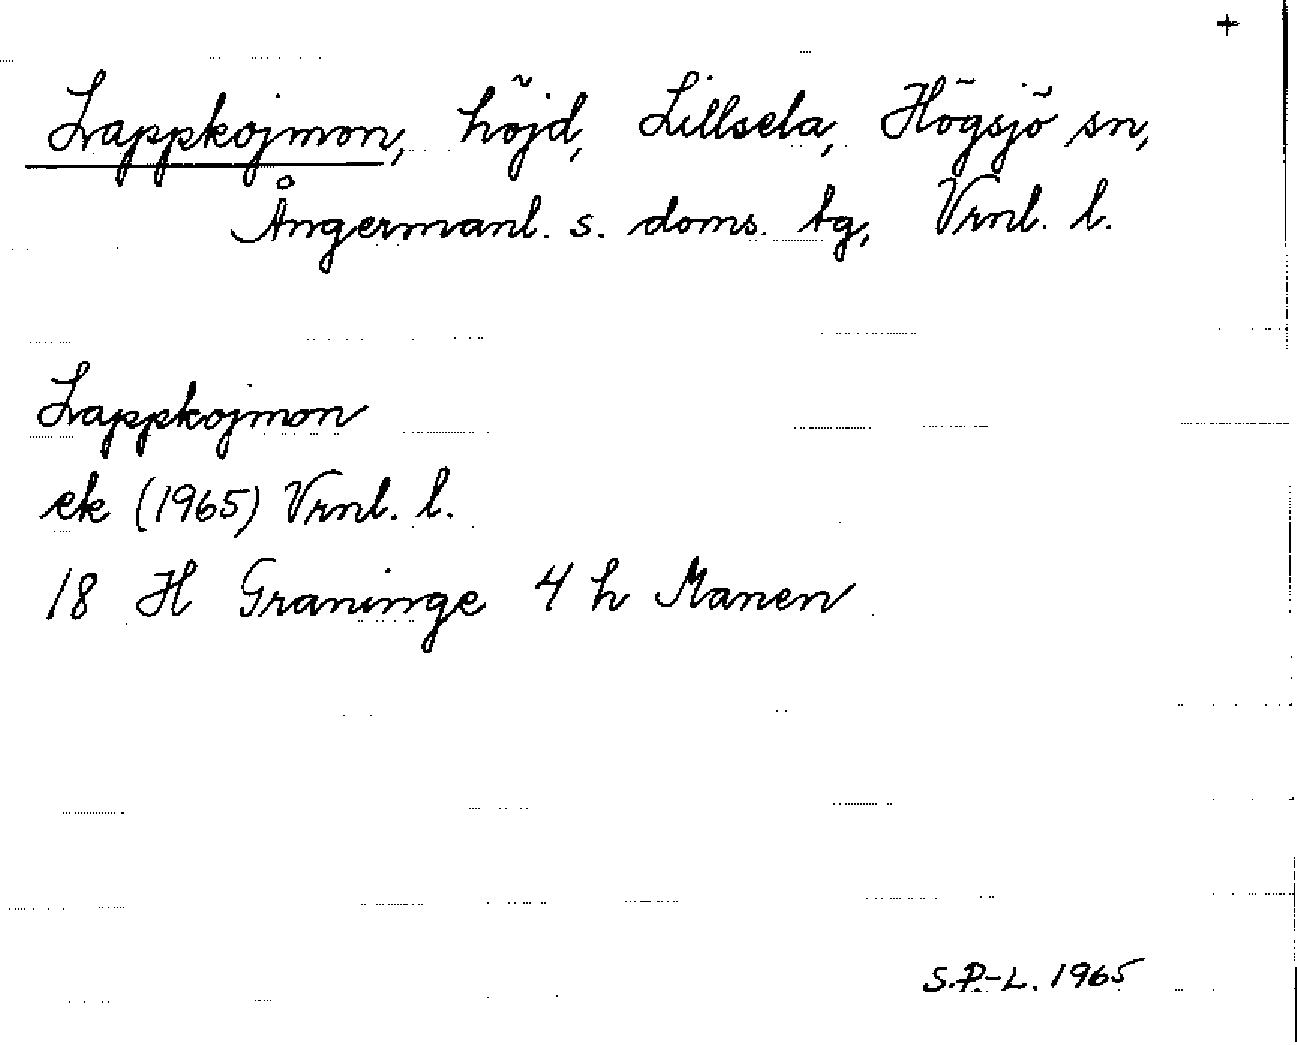 +
Lappkojmon, höjd, Lillsela, Högsjö sn,
Ångermanl. s. doms. tg, Vrnl. l.
Lappkojmon
ek (1965) Vrnl. l.
18 H Graninge 4 h Manen
S.P-L. 1965